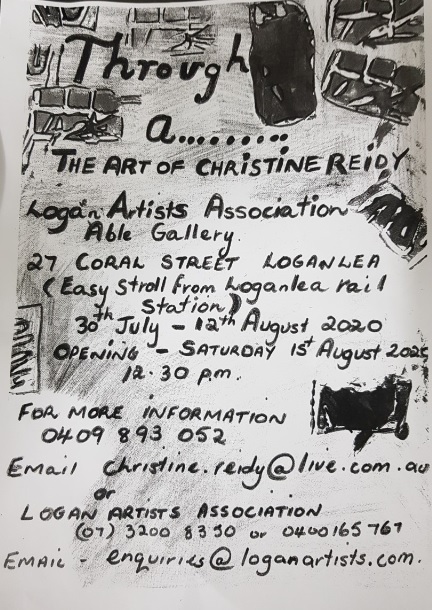 Through
a.........
THE ART OF CHRISTINE REIDY
Logan Artists Association
Able Gallery.
27 CORAL STREET LOGANLEA
(Easy stroll from Loganlea rail
station)
30th July - 12th August 2020
OPENING - SATURDAY 1st August 2020
12.30 pm.
FOR MORE INFORMATION
0409 893 052
Email christine.reidy@live.com.au
or
LOGAN ARTISTS ASSOCIATION
(07) 3200 8390 or 0400165767
EMAIL - enquiries@loganartists.com.